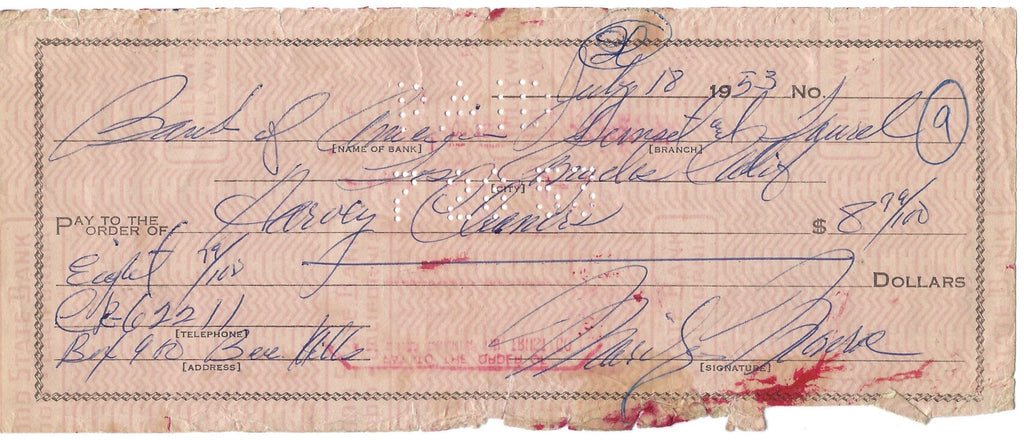 July 18 1953 No.
Bank of America Sunset and Laurel 9
[NAME OF BANK] [BRANCH]
Los Angeles Calif
[CITY]
PAY TO THE ORDER OF Harvey Cleaners $ 8 79/100
Eight 79/100 DOLLARS
CR 62211
[TELEPHONE]
Box 900 Bev Hills Marilyn Monroe
[ADDRESS] [SIGNATURE]
PAID
PAY TO THE ORDER OF